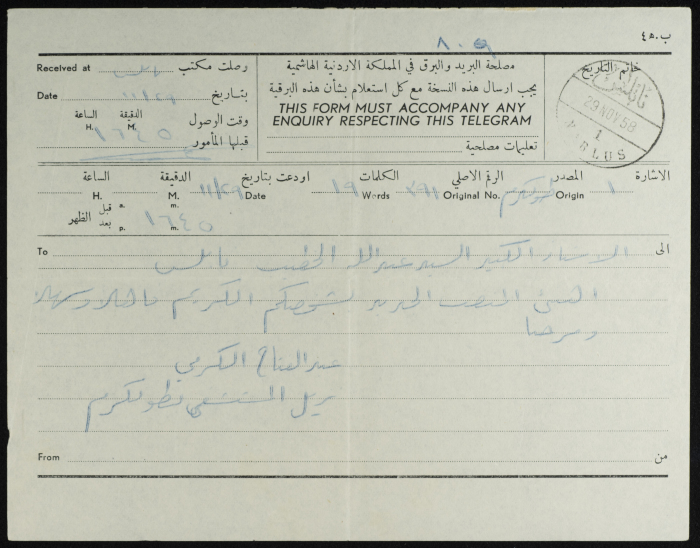 ب.ه٤
٨٠٩
وصلت مكتب نابلس Received at
بتاريخ ١١/٢٩ Date
وقت الوصول الدقيقة الساعة
H. M.
قبلها المأمور ١٦٤٥
مصلحة البريد والبرق في المملكة الاردنية الهاشمية
يجب ارسال هذه النسخة مع كل استعلام بشأن هذه البرقية
THIS FORM MUST ACCOMPANY ANY
ENQUIRY RESPECTING THIS TELEGRAM
تعليمات مصلحية
خاتم التاريخ
نابلس
29 NOV 58
1
NABLUS
الاشارة ١ المصدر Origin طولكرم الرقم الاصلي Original No. ٣٩١ الكلمات Words ١٩ اودعت بتاريخ Date ١١/٢٩ الدقيقة M. الساعة H.
قبل بعد الظهر a. p. m. m. ١٦٤٥
To الى
الاستاذ الكبير السيد عبدالله الخطيب نابلس
اهنئ المنصب الجديد لشخصكم الكريم فاهلا وسهلا
ومرحبا
عبد الفتاح الكرمي
نزيل المستشفى بطولكرم
From من